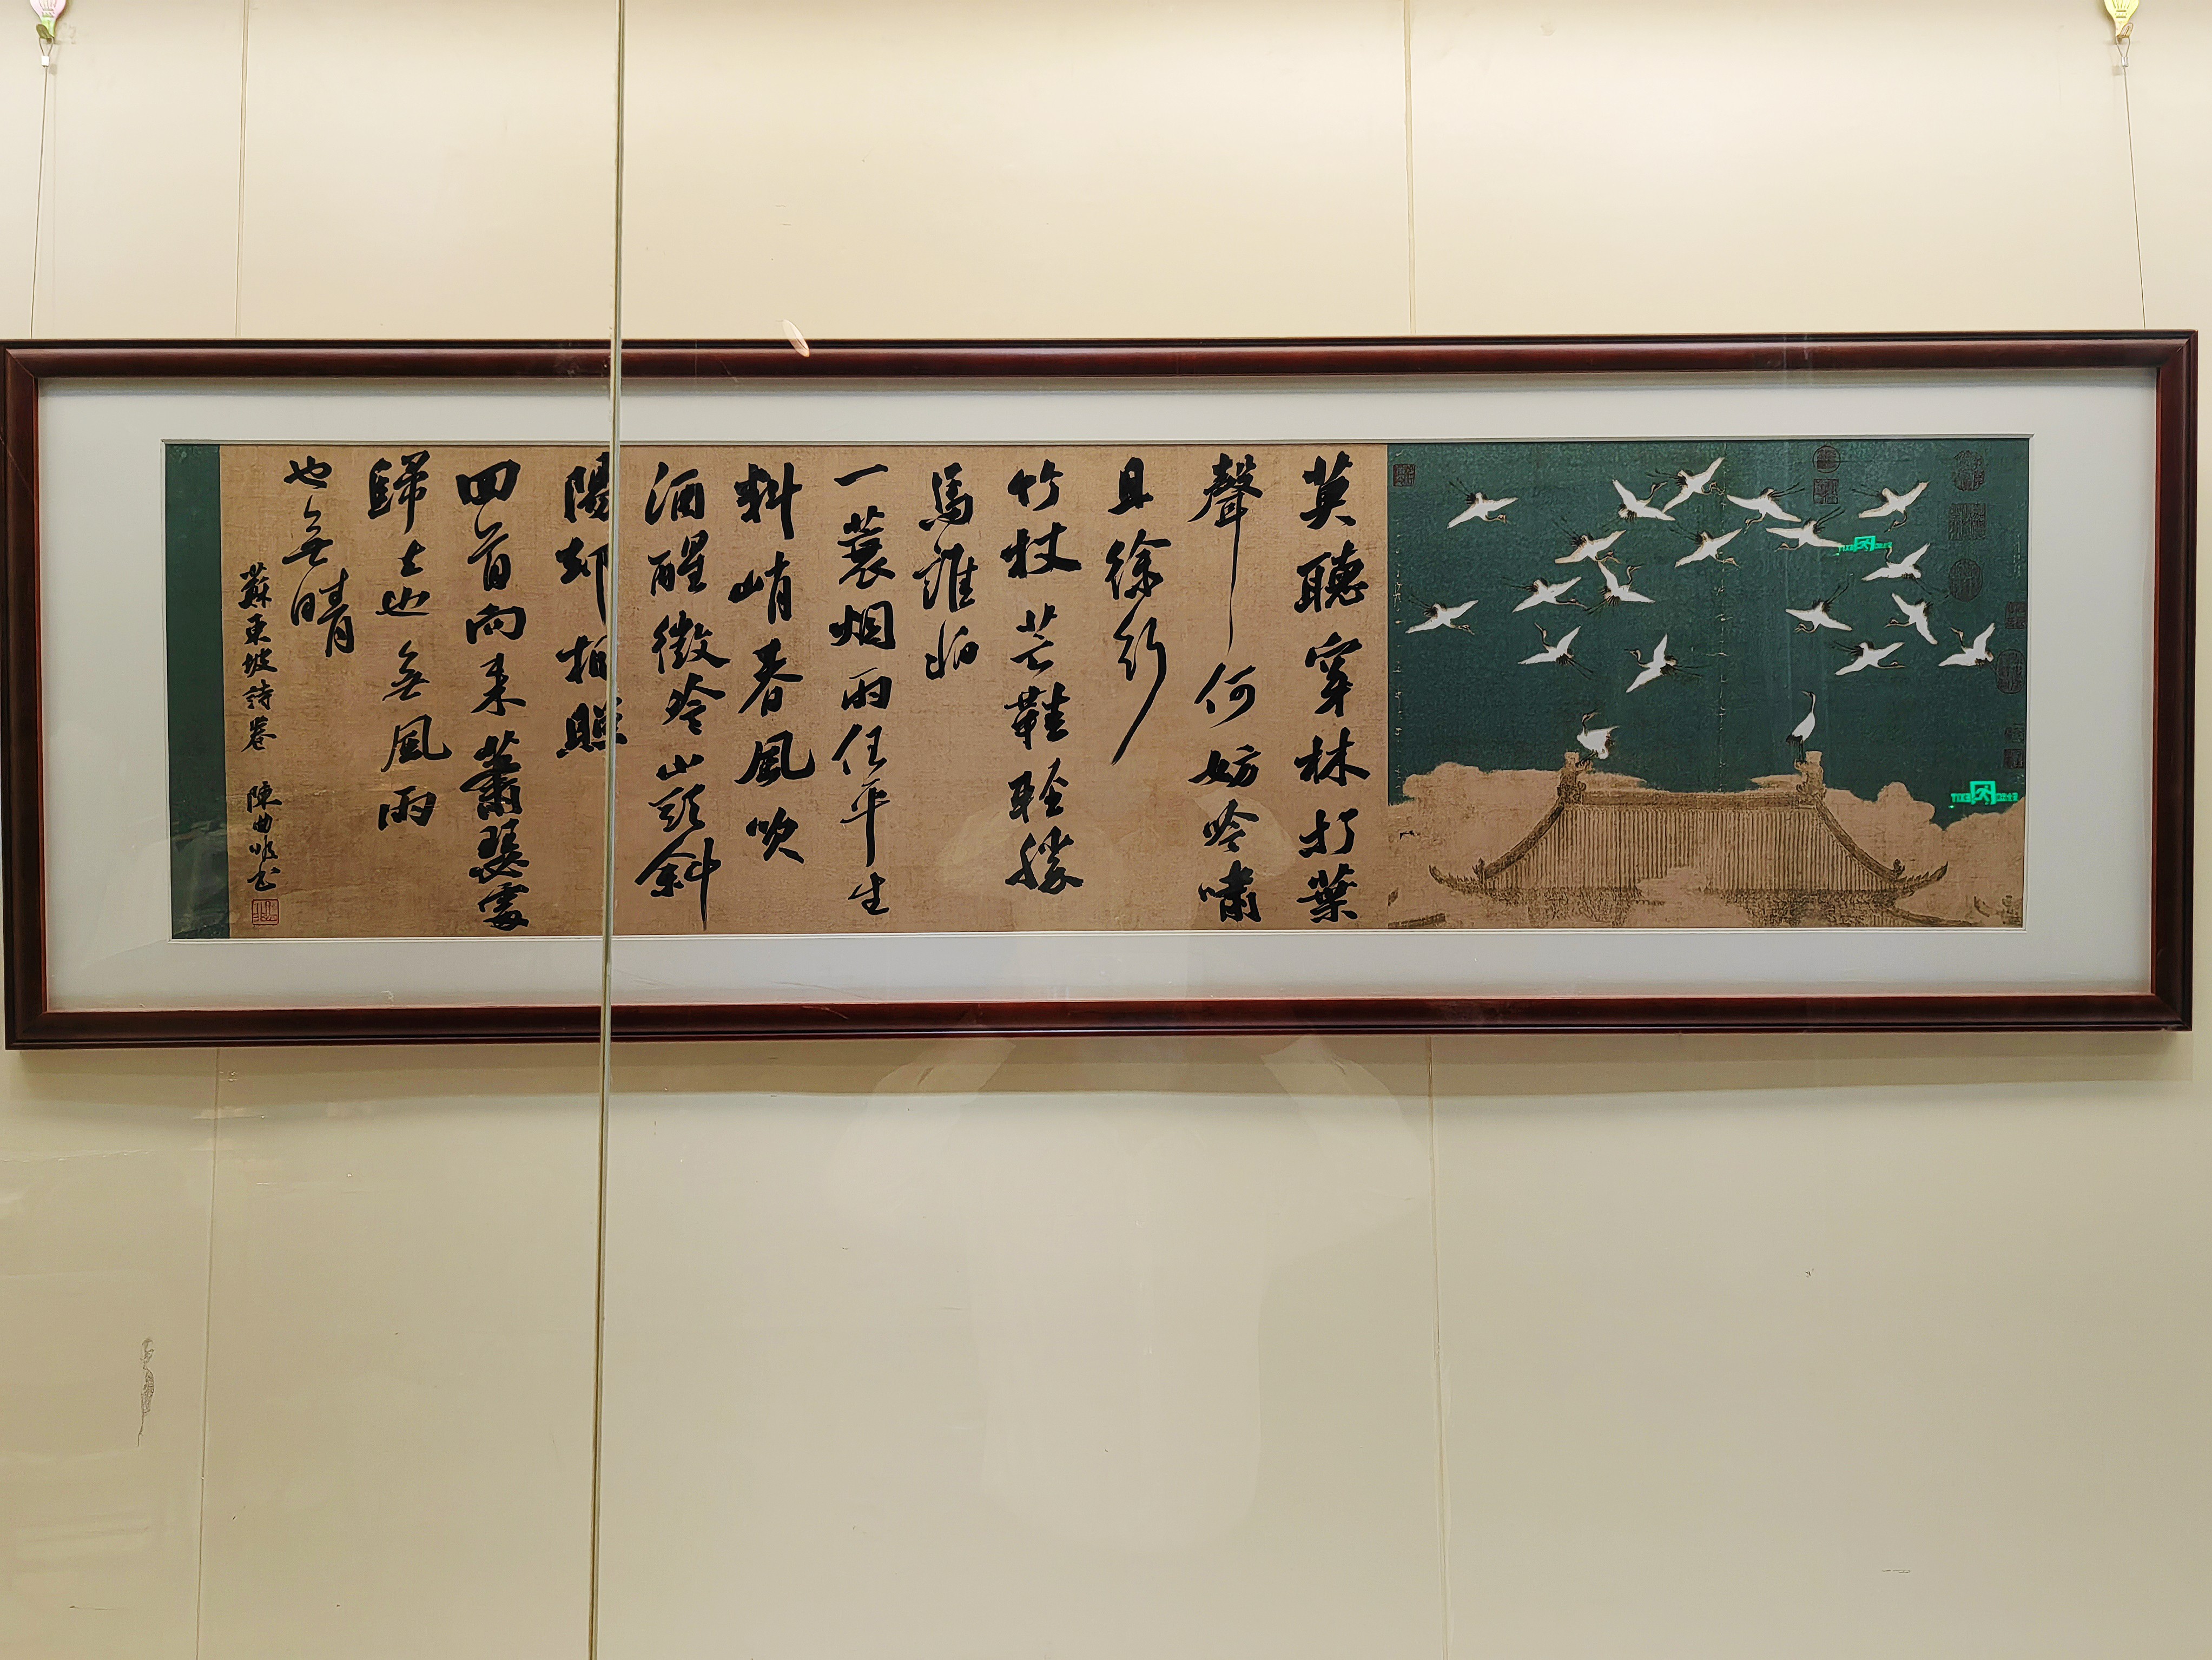 莫聽穿林打葉
聲何妨吟嘯
且徐行
竹杖芒鞋輕勝
馬誰怕
一蓑烟雨任平生
料峭春風吹
酒醒微冷山頭斜
陽却相照
回首向来蕭瑟處
歸去也無風雨
也無晴
蘇東坡詩卷 陳曲書